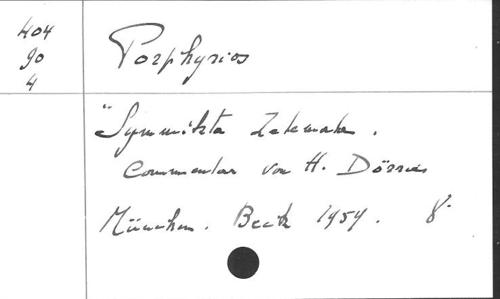 404
90
4
Porphyrios
"Symmikta Zetemata.
Commentar von H. Dörries
München. Beck 1959. 8°